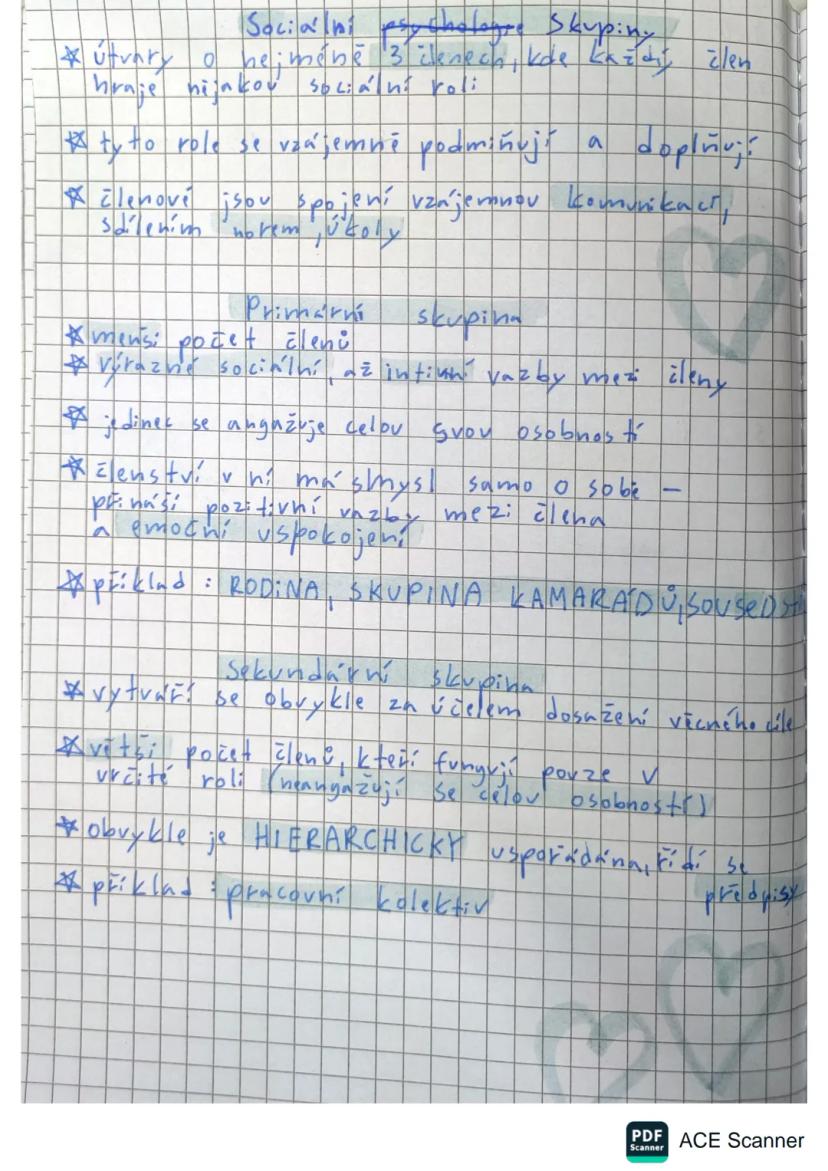 Sociální psychologie Skupiny
* útvary o nejméně 3 členech, kde každý člen
hraje nijakou sociální roli
* tyto role se vzájemně podmiňují a doplňují
* členové jsou spojení vzájemnou komunikací,
sdílením norem, úkoly
Primární skupina
* menší počet členů
* výrazné sociální, až intimní vazby mezi členy
* jedinec se angažuje celou svou osobností
* členství v ní má smysl samo o sobě -
přináší pozitivní vazby mezi člena
a emoční uspokojení
* příklad : RODINA, SKUPINA KAMARÁDŮ, SOUSEDSTV
Sekundární skupina
* vytváří se obvykle za účelem dosažení věcného cíle
* větší počet členů, kteří fungují pouze v
určité roli (neangažují se celou osobností)
* obvykle je HIERARCHICKY uspořádána, řídí se
předpisy
* příklad : pracovní kolektiv
PDF
Scanner
ACE Scanner